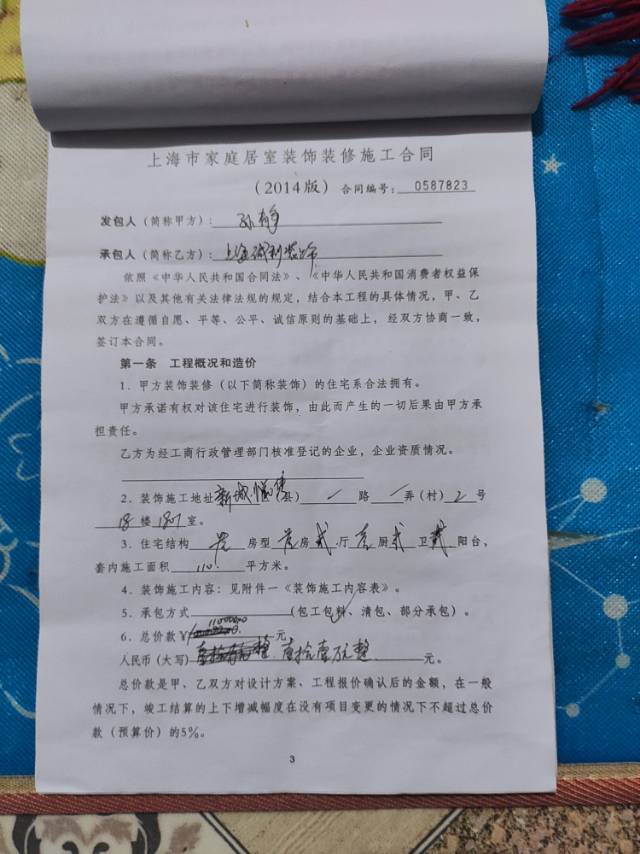 上海市家庭居室装饰装修施工合同
(2014版) 合同编号: 0587823
发包人(简称甲方):
承包人(简称乙方): 上海 装饰
依照《中华人民共和国合同法》、《中华人民共和国消费者权益保
护法》以及其他有关法律法规的规定,结合本工程的具体情况,甲、乙
双方在遵循自愿、平等、公平、诚信原则的基础上,经双方协商一致,
签订本合同。
第一条 工程概况和造价
1. 甲方装饰装修(以下简称装饰)的住宅系合法拥有。
甲方承诺有权对该住宅进行装饰,由此而产生的一切后果由甲方承
担责任。
乙方为经工商行政管理部门核准登记的企业,企业资质情况。
2. 装饰施工地址 新城 县) 路 弄(村) 2 号
18 楼 1807 室。
3. 住宅结构 房型 房 贰 厅 厨 贰 卫 贰 阳台,
套内施工面积 110 平方米。
4. 装饰施工内容: 见附件一《装饰施工内容表》。
5. 承包方式 (包工包料、清包、部分承包)。
6. 总价款¥ 元
人民币(大写) 壹拾壹万元整 元。
总价款是甲、乙双方对设计方案、工程报价确认后的金额,在一般
情况下,竣工结算的上下增减幅度在没有项目变更的情况下不超过总价
款(预算价)的5%。
3